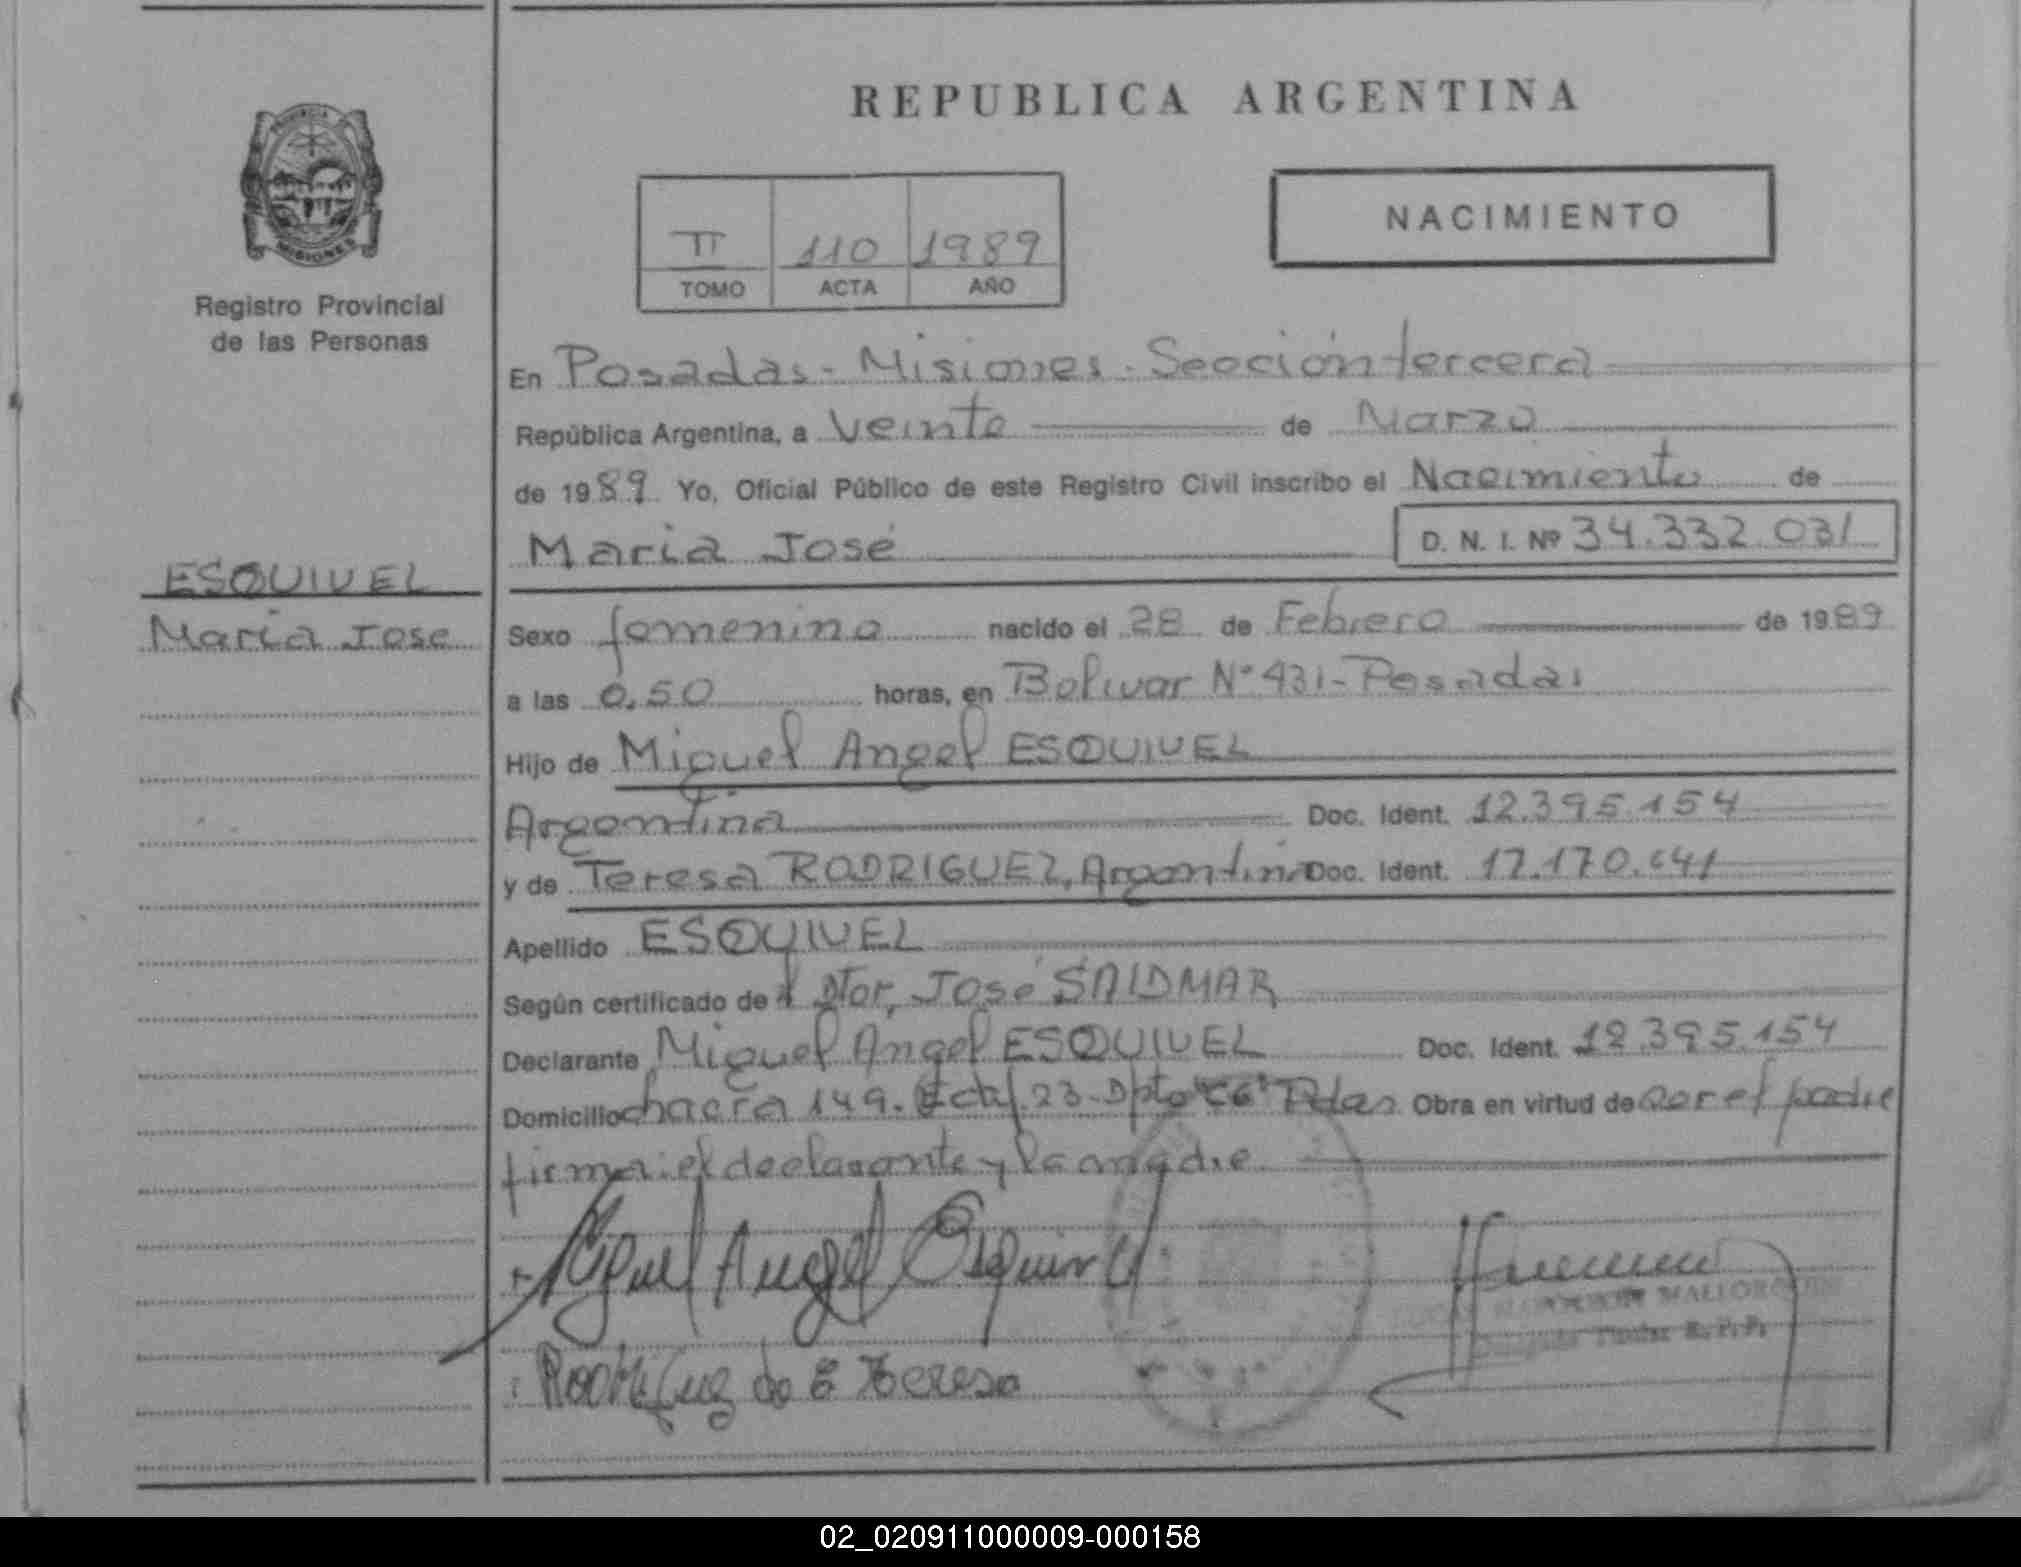 REPUBLICA ARGENTINA
PROVINCIA
MISIONES
Registro Provincial
de las Personas
NACIMIENTO
II 110 1989
TOMO ACTA AÑO
En Posadas - Misiones - Sección tercera
República Argentina, a Veinte de Marzo
de 1989 Yo, Oficial Público de este Registro Civil inscribo el Nacimiento de
Maria José D. N. I. Nº 34.332.031
ESQUIVEL
Maria Jose
Sexo femenino nacido el 28 de Febrero de 1989
a las 0,50 horas, en Bolivar Nº 431 - Posadas
Hijo de Miguel Angel ESQUIVEL
Argentina Doc. Ident. 12.395.154
y de Teresa RODRIGUEZ, Argentina Doc. Ident.
Apellido ESQUIVEL
Según certificado de José
Declarante Miguel Angel ESQUIVEL Doc. Ident. 12.395.154
Domicilio chacra 149. 23 - Dpto Pdas Obra en virtud de ser el padre
firma: el declarante y la madre
Miguel Angel Esquivel
MALLORQUIN
Titular R.P.P.
Rodriguez de E Teresa
02_020911000009-000158